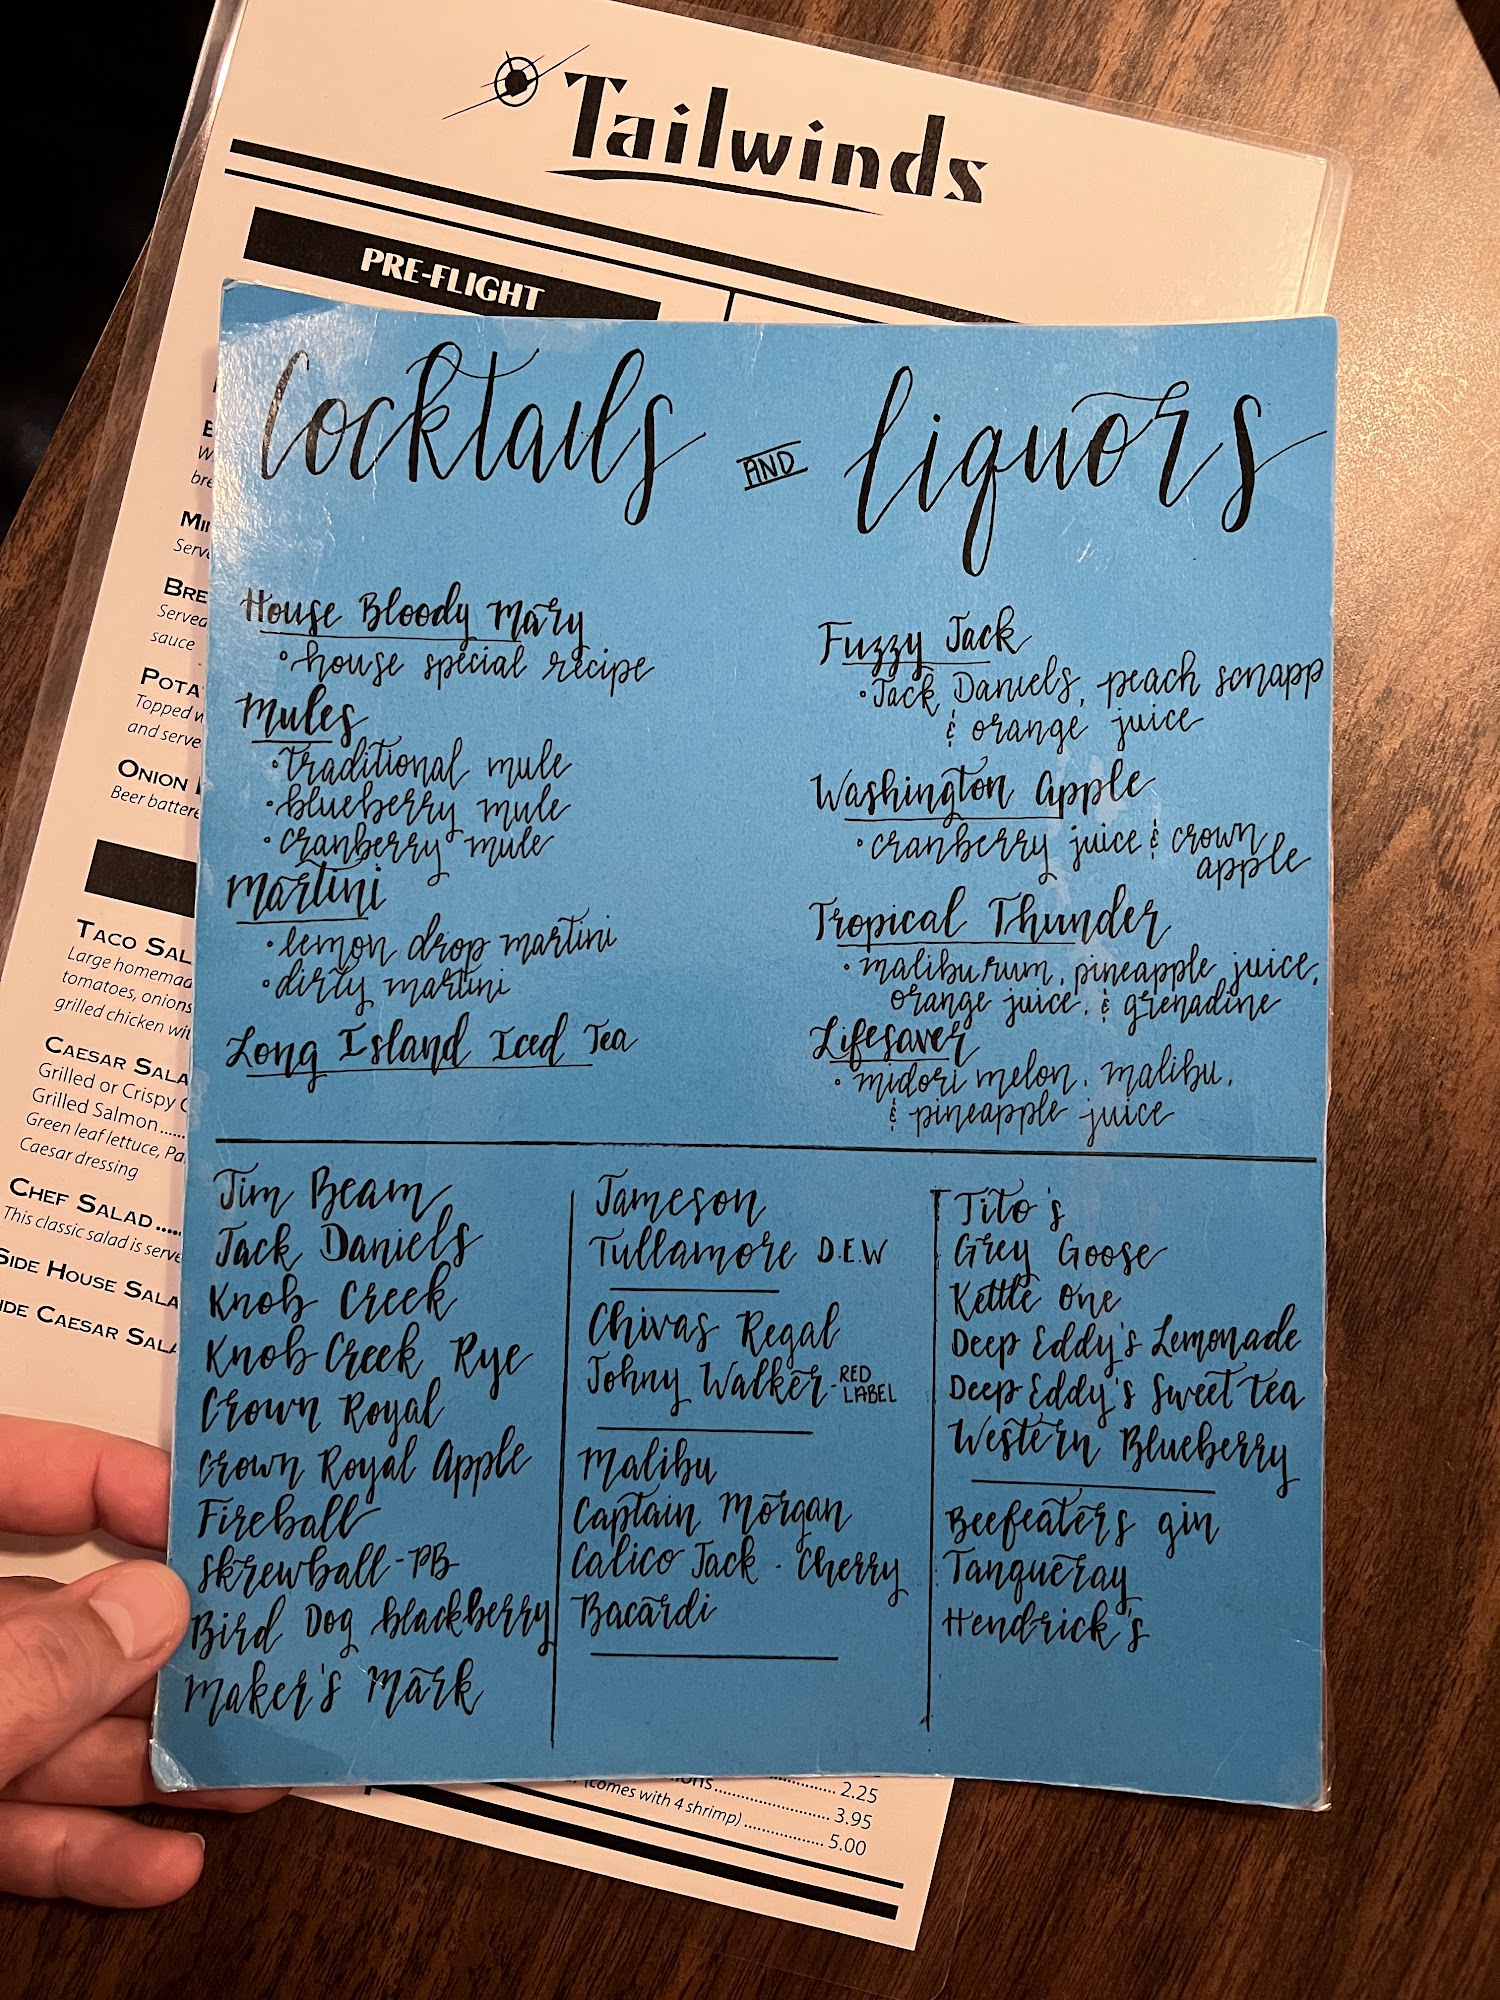 Tailwinds
PRE-FLIGHT
Cocktails AND liquors
House Bloody Mary
• house special recipe
Mules
• traditional mule
• blueberry mule
• cranberry mule
Martini
• lemon drop martini
• dirty martini
Long Island Iced Tea
Fuzzy Jack
• Jack Daniels, peach scnapp
& orange juice
Washington Apple
• cranberry juice & crown
apple
Tropical Thunder
• malibu rum, pineapple juice,
orange juice, & grenadine
Lifesaver
• midori melon, malibu,
& pineapple juice
Jim Beam
Jack Daniels
Knob Creek
Knob Creek Rye
Crown Royal
Crown Royal Apple
Fireball
Skrewball - PB
Bird Dog blackberry
Maker's Mark
Jameson
Tullamore D.E.W
Chivas Regal
Johny Walker - RED
LABEL
Malibu
Captain Morgan
Calico Jack - Cherry
Bacardi
Tito's
Grey Goose
Kettle One
Deep Eddy's Lemonade
Deep Eddy's Sweet tea
Western Blueberry
Beefeaters gin
Tanqueray
Hendrick's
Served
sauce
Topped
and serve
ONION
Beer battere
TACO SAL
Large homemad
tomatoes, onions
grilled chicken wit
CAESAR SALA
Grilled or Crispy C
Grilled Salmon......
Green leaf lettuce, Pa
Caesar dressing
CHEF SALAD.....
This classic salad is serve
SIDE HOUSE SALA
IDE CAESAR SALA
2.25
3.95
(comes with 4 shrimp) 5.00